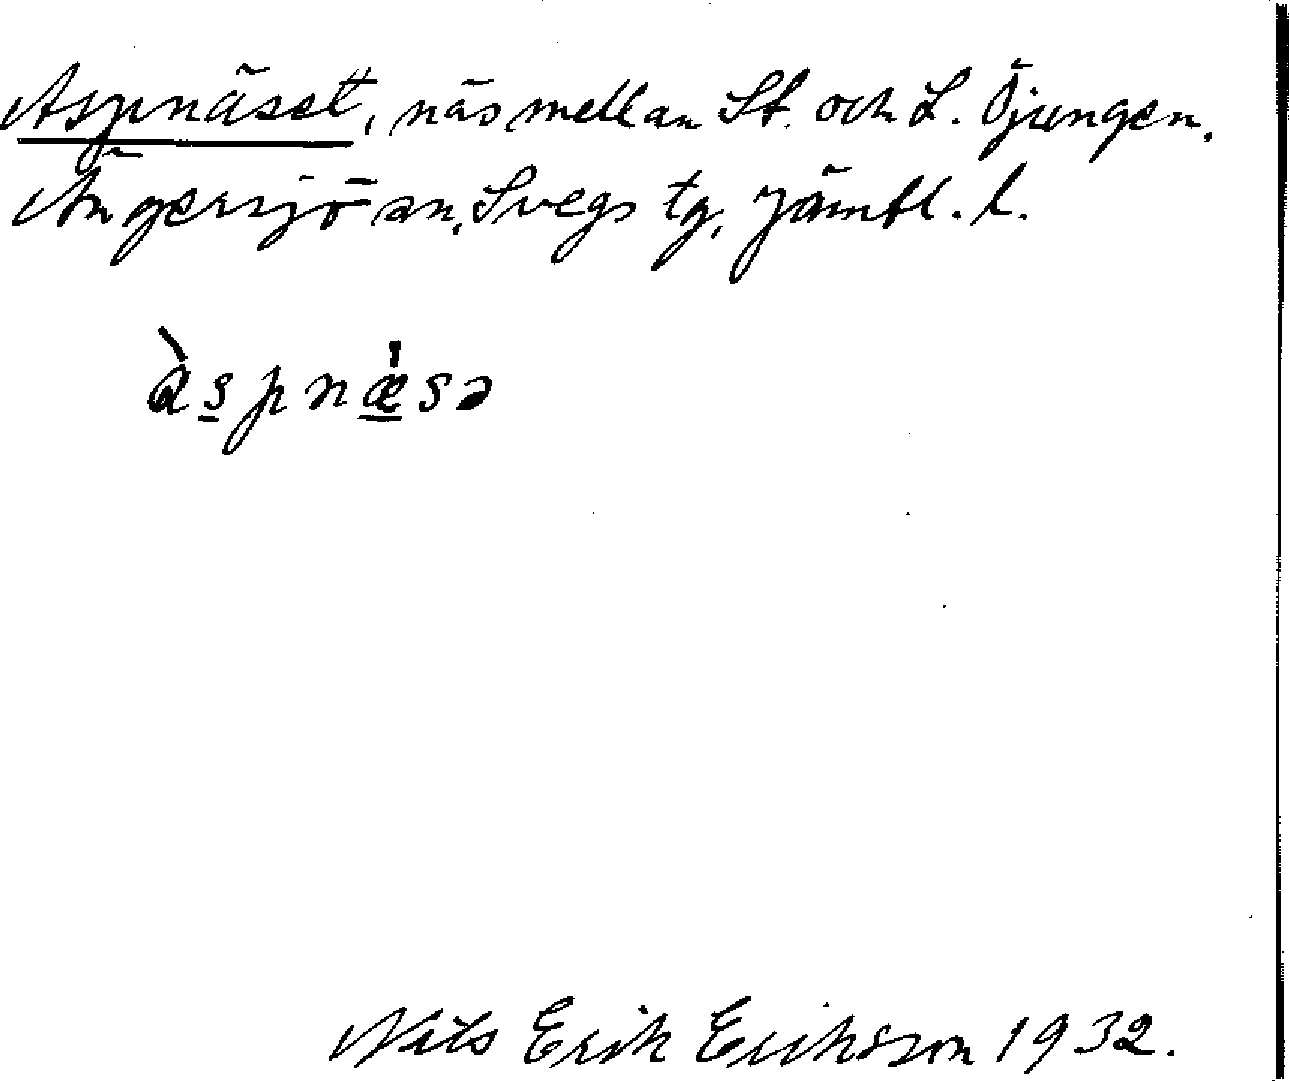 Aspnäset, näs mellan St. och L. Öjungen,
Ängersjö an, Svegs tg, Jämtl. l.
àspnæ̲̍sə
Nils Erik Erikson 1932.